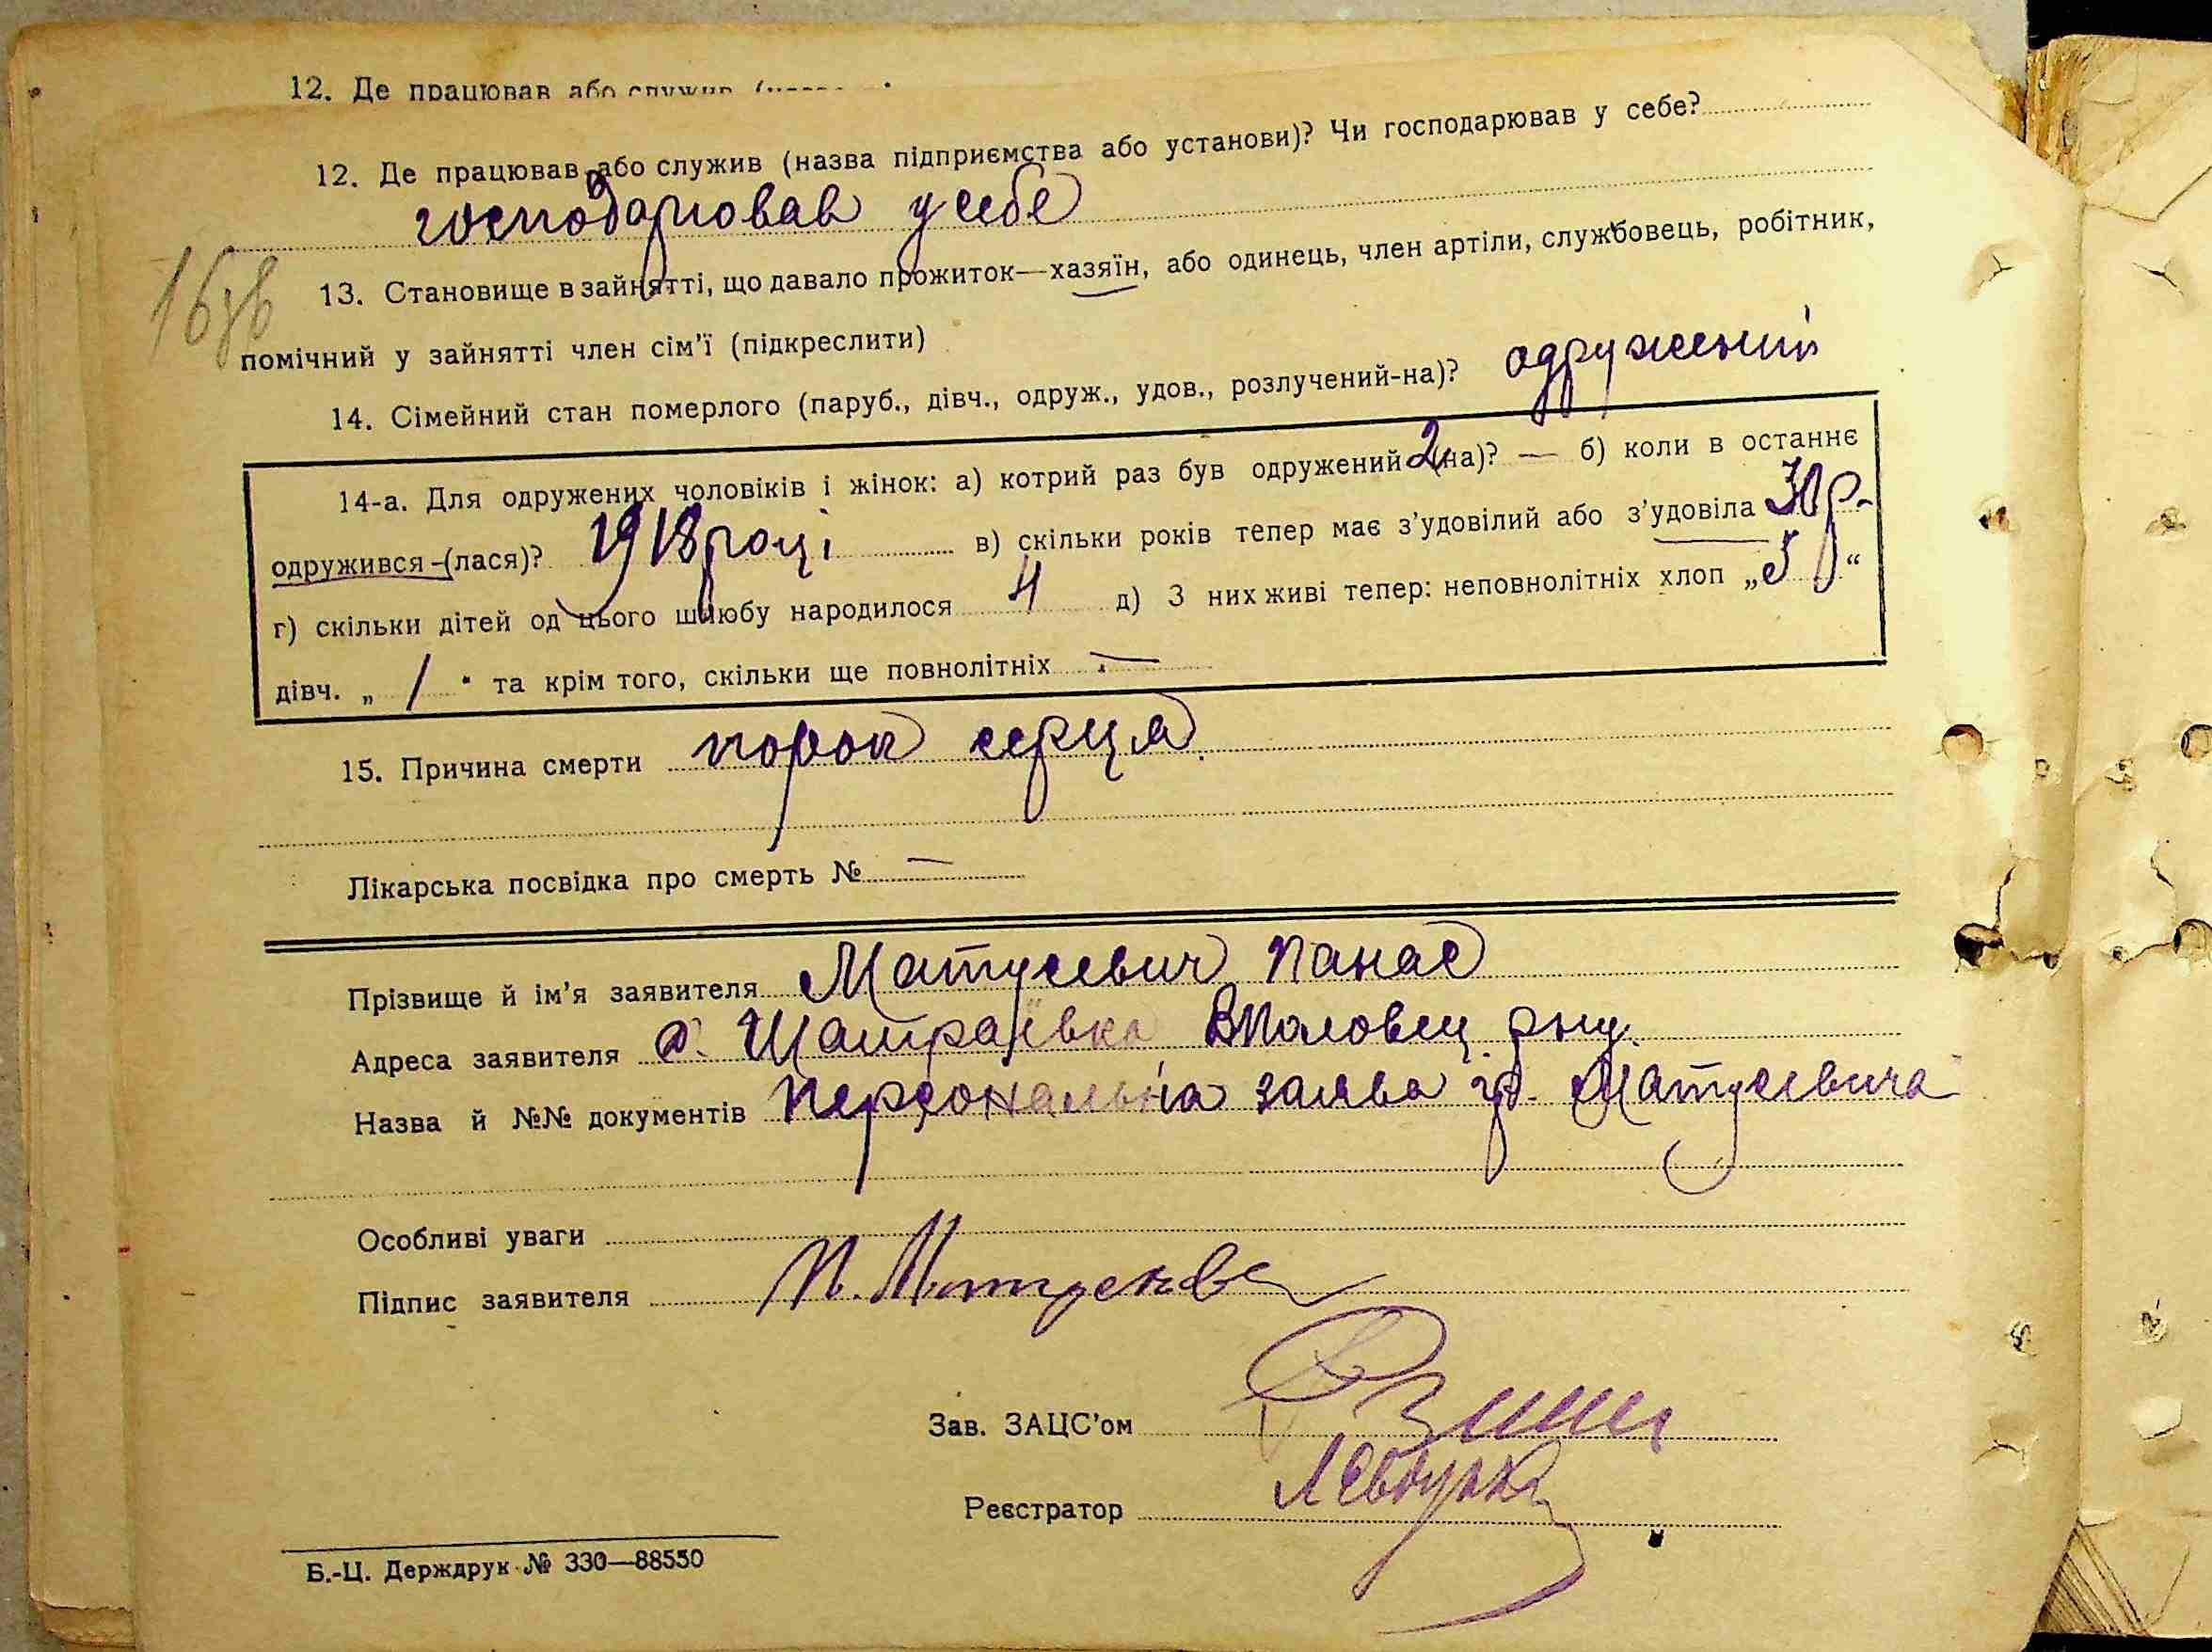 12. Де працював або служив
12. Де працював або служив (назва підприємства або установи)? Чи господарював у себе?
господарював у себе
13. Становище в зайнятті, що давало прожиток—хазяїн, або одинець, член артіли, службовець, робітник,
помічний у зайнятті член сім'ї (підкреслити)
14. Сімейний стан померлого (паруб., дівч., одруж., удов., розлучений-на)? одружений
14-а. Для одружених чоловіків і жінок: а) котрий раз був одружений (на)? 2 — б) коли в останнє
одружився-(лася)? 1918 році в) скільки років тепер має з'удовілий або з'удовіла 30 р.
г) скільки дітей од цього шлюбу народилося 4 д) З них живі тепер: неповнолітніх хлоп „3“
дівч. „ 1 “ та крім того, скільки ще повнолітніх —
15. Причина смерти порок серця.
Лікарська посвідка про смерть № —
Прізвище й ім'я заявителя Матусевич Панас
Адреса заявителя с. Шамраївка ВПоловец. рну.
Назва й №№ документів персональна заява гр. Матусевича
Особливі уваги
Підпис заявителя П. Матусев
Зав. ЗАЦС'ом
Реєстратор
Б.-Ц. Держдрук № 330—88550